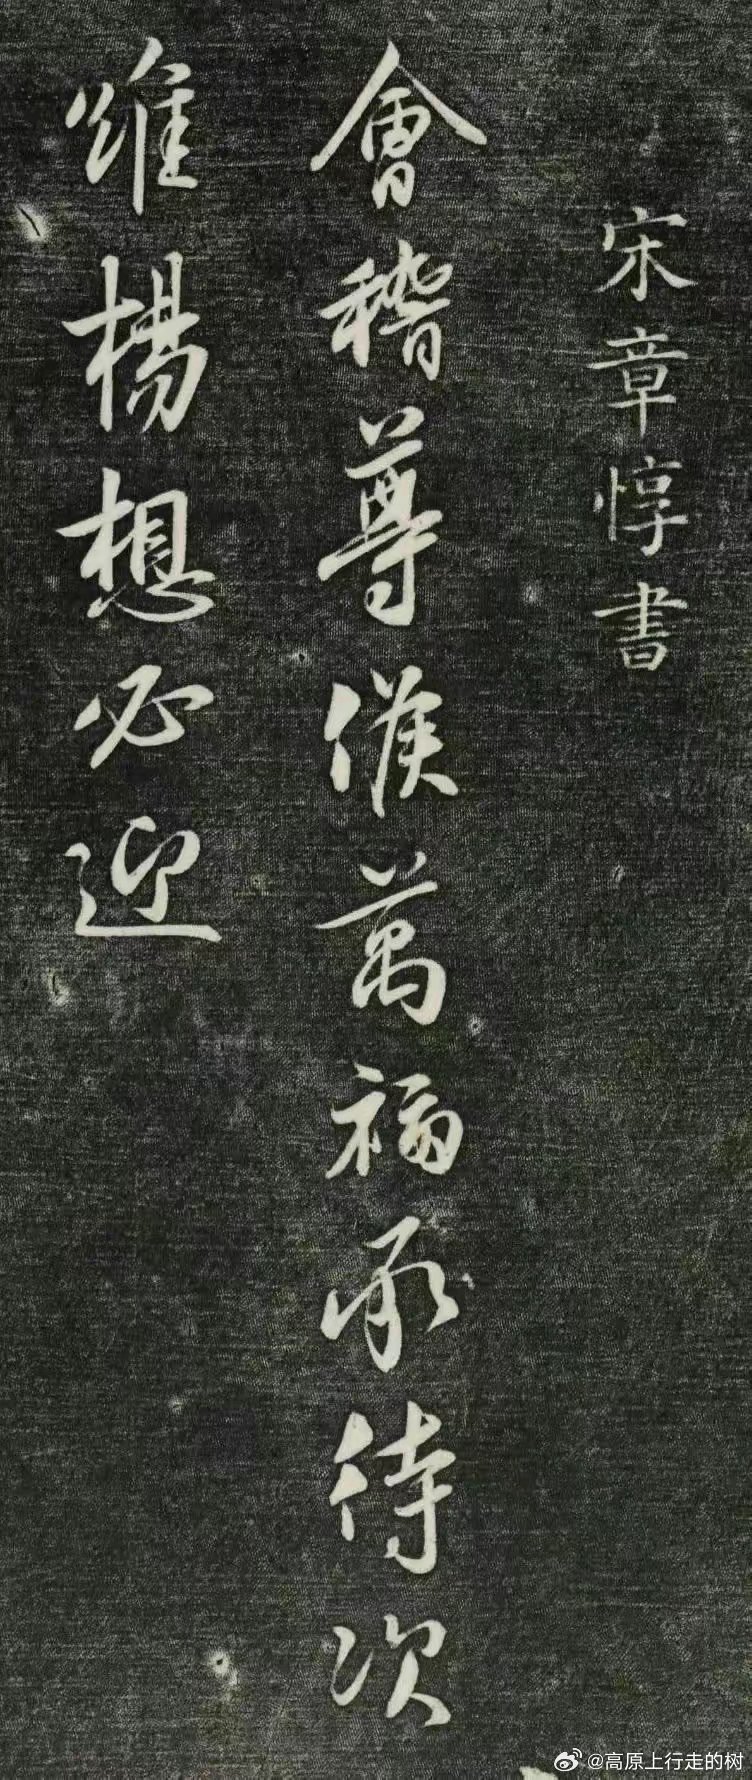 宋章惇書
會稽尊候萬福承待次
維楊想必迎
@高原上行走的树